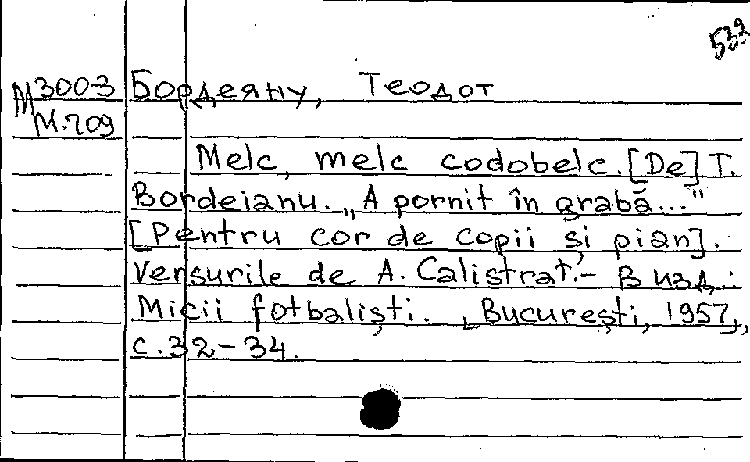 532
М3003 Бордеяну, Теодот
М.209
Melc, melc codobelc. [De] T.
Bordeianu. „A pornit în grabă..."
[Pentru cor de copii şi pian].
Versurile de A. Calistrat.- В изд.:
Micii fotbalişti. , Bucureşti, 1957,,
с.32-34.